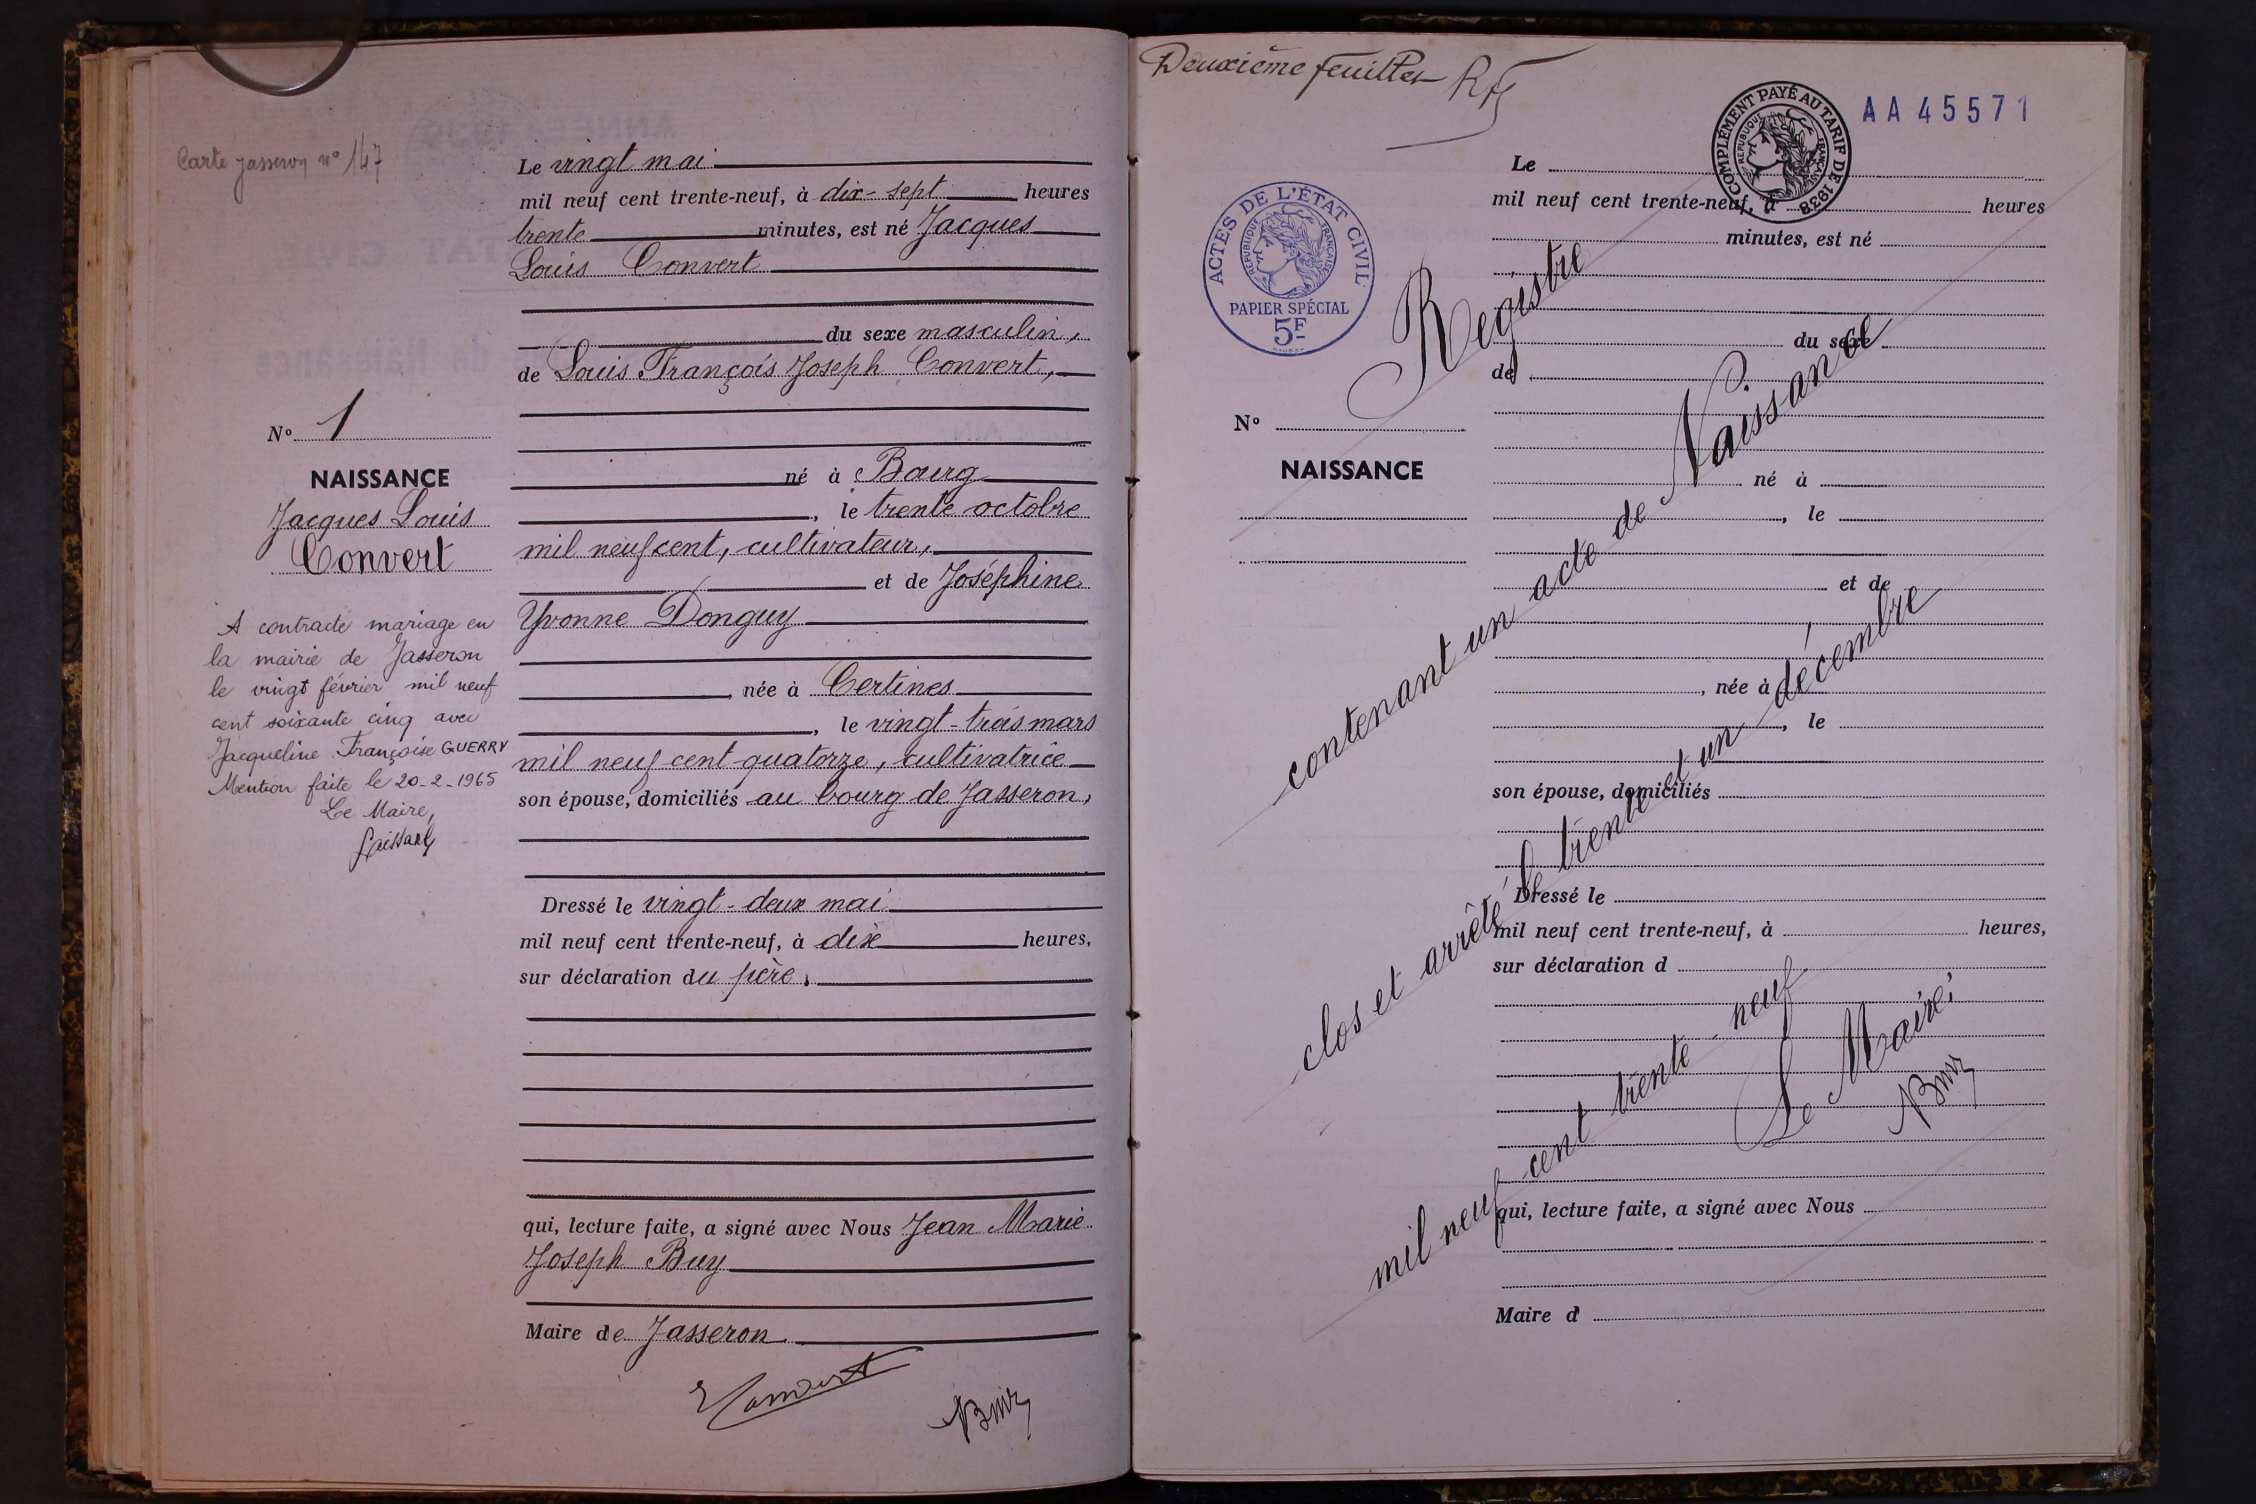 Carte Jasseron n° 147
Le vingt mai
mil neuf cent trente-neuf, à dix-sept heures
trente minutes, est né Jacques
Louis Convert
du sexe masculin,
de Louis François Joseph Convert,
né à Bourg
, le trente octobre
mil neuf cent, cultivateur,
et de Joséphine
Yvonne Donguy
, née à Certines
, le vingt-trois mars
mil neuf cent quatorze, cultivatrice
son épouse, domiciliés au bourg de Jasseron,
Dressé le vingt-deux mai
mil neuf cent trente-neuf, à dix heures,
sur déclaration du père,
qui, lecture faite, a signé avec Nous Jean Marie
Joseph Buy
Maire de Jasseron
N° 1
NAISSANCE
Jacques Louis
Convert
A contracté mariage en
la mairie de Jasseron
le vingt février mil neuf
cent soixante cinq avec
Jacqueline Françoise GUERRY
Mention faite le 20-2-1965
Le Maire,
Convert
Deuxième feuillet
COMPLÉMENT PAYÉ AU TARIF DE 1938
RÉPUBLIQUE FRANÇAISE
AA 45571
ACTES DE L'ÉTAT CIVIL
RÉPUBLIQUE FRANÇAISE
PAPIER SPÉCIAL
5F
Le
mil neuf cent trente-neuf, à heures
minutes, est né
du sexe
de
N°
NAISSANCE
né à
, le
et de
, née à
, le
son épouse, domiciliés
Dressé le
mil neuf cent trente-neuf, à heures,
sur déclaration d
qui, lecture faite, a signé avec Nous
Maire d
Registre
contenant un acte de Naissance
clos et arrêté le trente et un décembre
mil neuf cent trente-neuf
Le Maire,